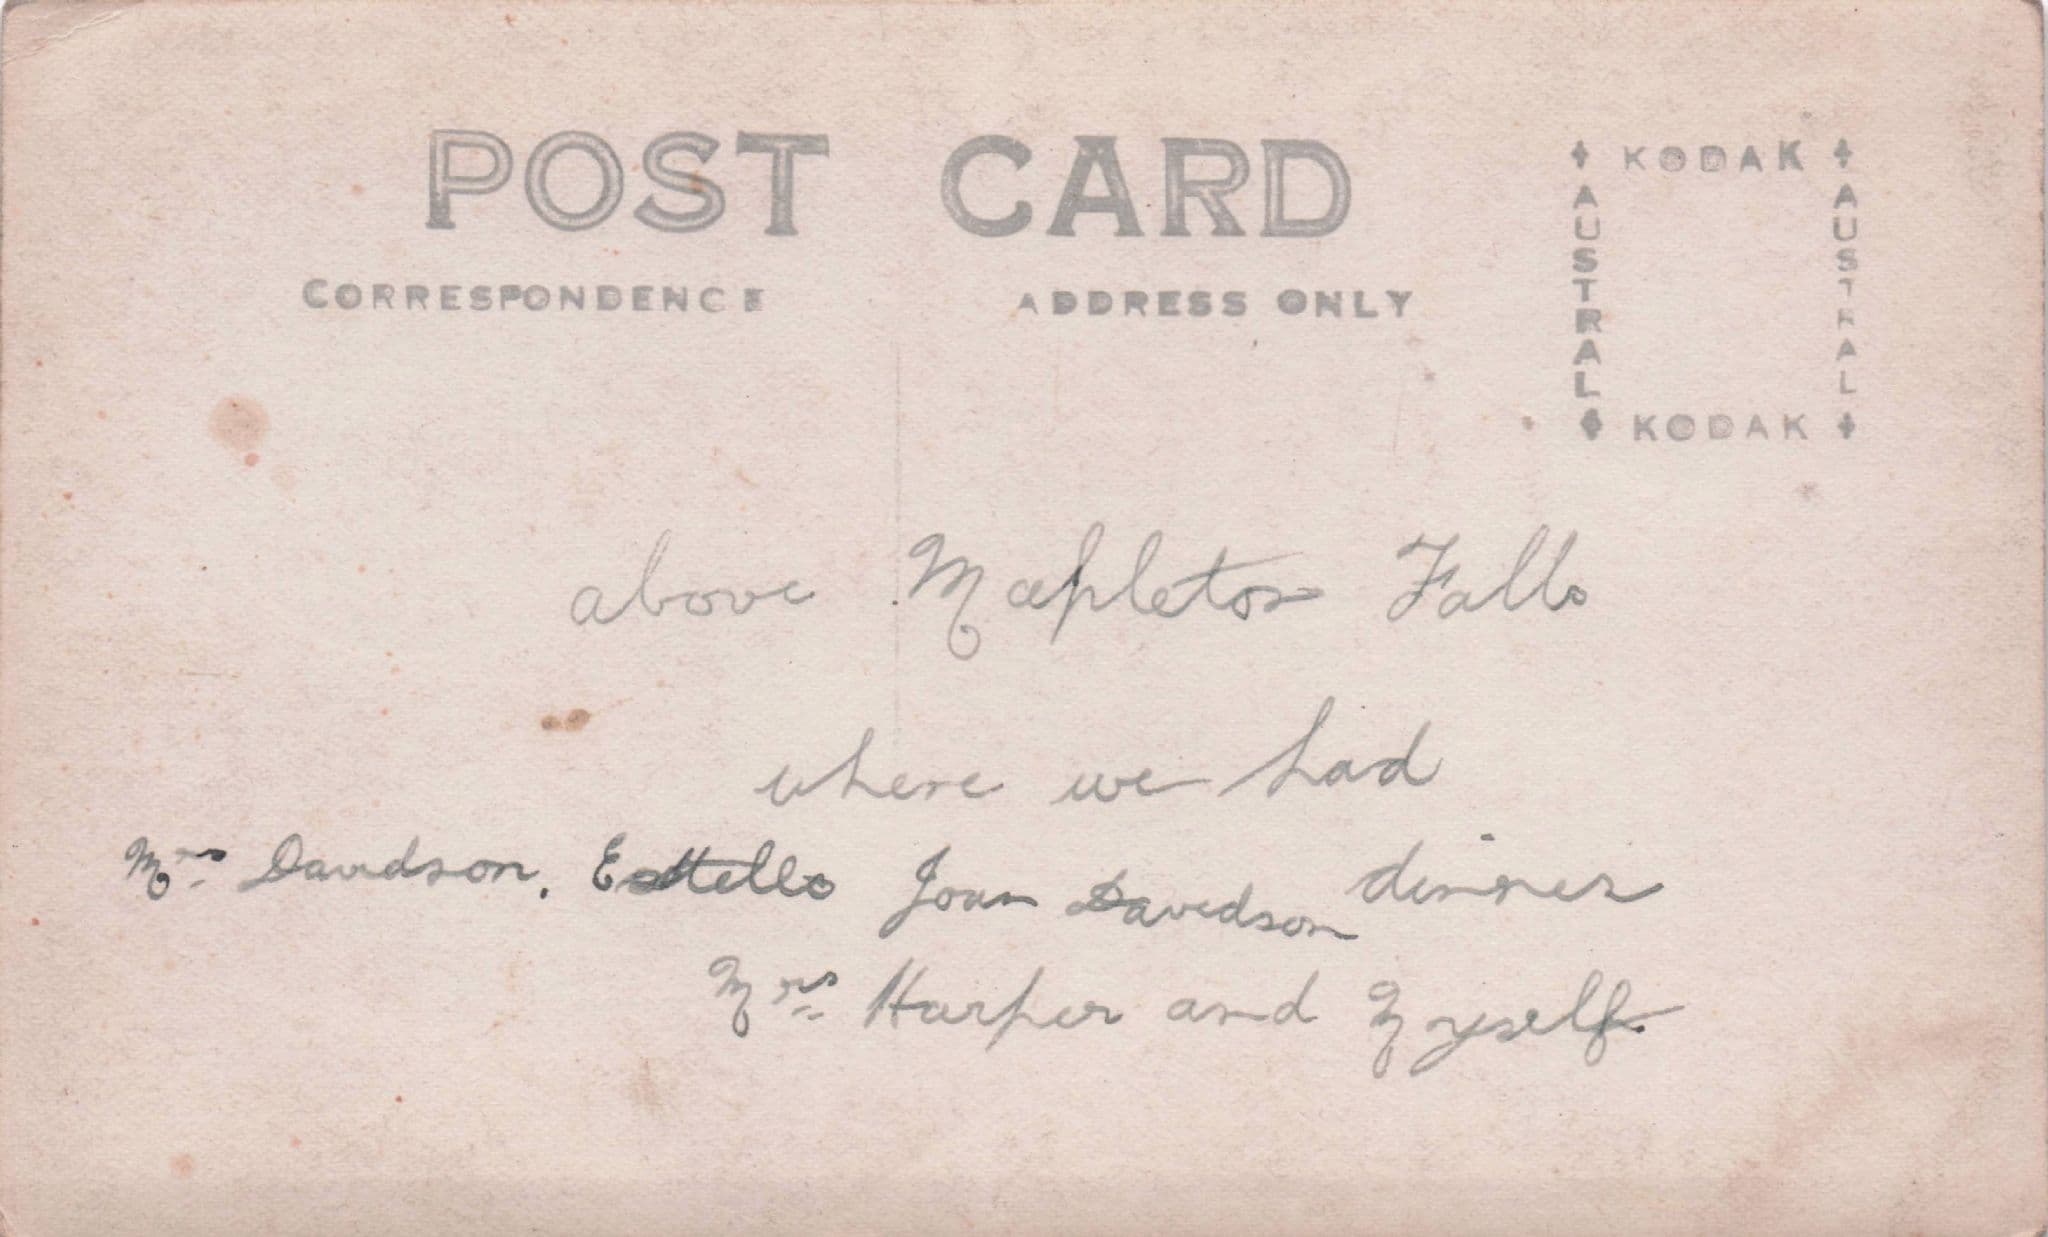 POST CARD
CORRESPONDENCE
ADDRESS ONLY
KODAK
AUSTRAL
AUSTRAL
KODAK
above Mapleton Falls
where we had
dinner
Mrs Davidson, Estelle Joan Davidson
Mrs Harper and Myself.